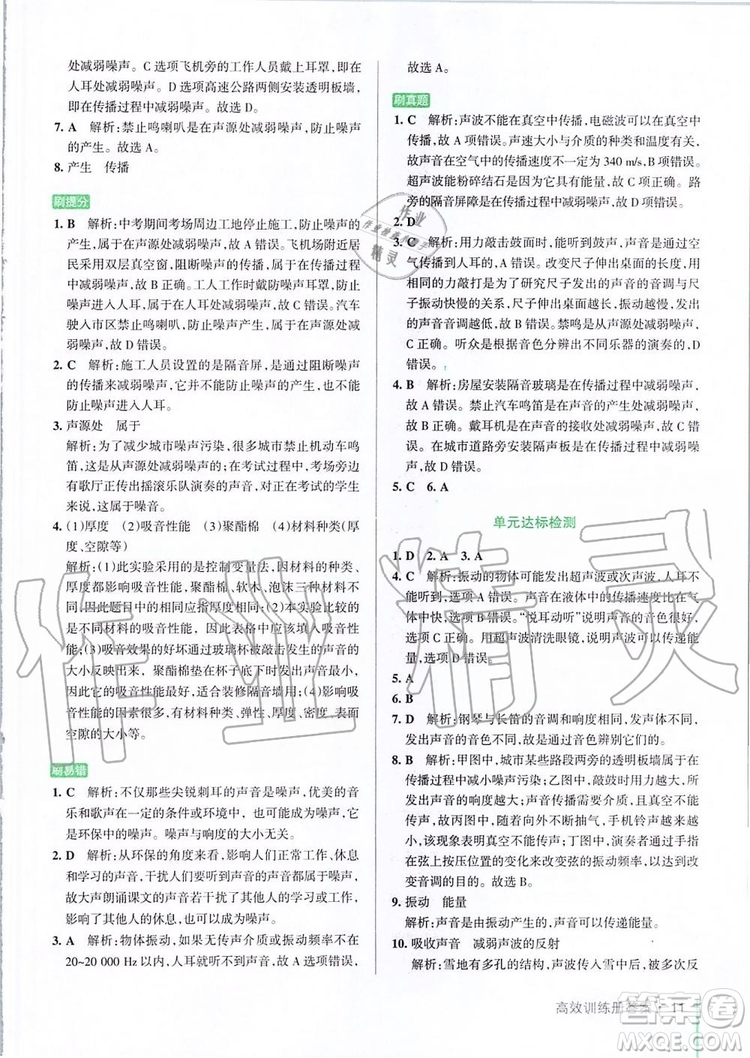 处减弱噪声。C 选项飞机旁的工作人员戴上耳罩,即在
人耳处减弱噪声。D 选项高速公路两侧安装透明板墙,
即在传播过程中减弱噪声。故选 D。
7. A 解析:禁止鸣喇叭是在声源处减弱噪声,防止噪声
的产生。故选 A。
8. 产生 传播
刷提分
1. B 解析:中考期间考场周边工地停止施工,防止噪声的
产生,属于在声源处减弱噪声,故 A 错误。飞机场附近居
民采用双层真空窗,阻断噪声的传播,属于在传播过程中
减弱噪声,故 B 正确。工人工作时戴有耳罩,防止
噪声进入人耳,属于在人耳处减弱噪声,故 C 错误。汽车
驶入市区禁止鸣喇叭,防止噪声产生,属于在声源处减弱
噪声,故 D 错误。
2. C 解析:施工人员设置的是隔音屏,是通过阻断噪声
的传播来减弱噪声,这种方法不能防止噪声产生,也不
能防止噪声进入人耳。
3. 声源处 属于
解析:为了减少城市噪声污染,很多城市禁止机动车鸣
笛,这是从声源处减弱噪声的。在考试过程中,考场旁
有歌厅正传出摇滚乐队演奏的声音,对正在考试的学生
来说属于噪音。
4. (1)厚度 (2)吸音性能 (3)聚酯棉 (4)材料种类(厚
度、空隙等)
解析:(1)此实验采用的是控制变量法,因为材料的种类、
厚度都影响吸音性能,聚酯棉、软木、泡沫三种材料不同,
因此题目中的相同应指厚度相同。(2)本实验比较的
是不同材料的吸音性能,所以为了解决实际问题,应比
较的是吸音性能。(3)吸音效果的好坏通过玻璃杯被敲击后声音的
大小反映出来,聚酯棉垫在杯子底下后,敲击玻璃杯听到的声音
最小,适合装修隔音墙的选择。(4)影响吸音
性能的因素很多,有材料种类、弹性、厚度、密度、表面
空隙的大小等。
刷易错
1. C 解析:不仅那些尖锐刺耳的声音是噪声,优美的音
乐和歌声在一定的条件下,影响了人们的工作和休息,
它是环保中的噪声。噪声与响度的大小无关。
2. D 解析:从环保的角度看,影响人们工作、休息
和学习的声音,干扰人们要听的声音,都是噪声,
故大声朗诵课文的声音干扰了其他人的学习或工作
时,就成了噪声。
3. A 解析:物体振动,如果无传声介质或振动频率不在
20~20 000 Hz 以内,人耳就听不到声音,故 A 选项错误,
故选 A。
刷真题
1. C 解析:声波不能在真空中传播,电磁波可以在真空
中传播,故 A 项错误。声速大小与介质的种类和温度有
关,故声音在空气中的传播速度不一定为 340 m/s,B 项错误。
超声波能粉碎结石是声波传递能量,故 C 项正确。路
旁的隔音屏障是在传播过程中减弱噪声,故 D 项错误。
2. D
3. C 解析:用力敲击鼓面时,能听到声音,声音是通过空
气传播到人耳的,A 错误。改变尺子伸出桌面的长度,用
相同的力敲打是为了研究尺子发出的声音的音调与
尺子振动快慢的关系,尺子伸出桌面越长,振动越慢,发
出的声音音调越低,故 B 错误、C 正确。
听众是根据音色分辨出不同乐器的演奏的,
D 错误。
4. B 解析:房屋安装隔音玻璃是在传播过程中减弱噪声,
故 A 错误。禁止汽车鸣笛是在声音的产生处减弱噪声,
故 B 正确。戴耳机是在声音的接收处减弱噪声,故 C 错
误。在城市道路旁安装隔声板是在传播过程中减弱噪
声,故 D 错误。
5. C 6. A
单元达标检测
1. D 2. A 3. A
4. C 解析:振动的物体可能发出超声波或次声波,人耳不
能听到,选项 A 错误。声音在不同介质中的传播速度一般不
同,选项 B 错误。“悦耳动听”说明声音的音色好,
选项 C 正确。用超声波清洗眼镜,说明声波可以传递能
量,选项 D 错误。
5. A
6. A
7. D 解析:钢琴与长笛的音调可以相同,发声体不同,
发出声音的音色不同。
8. B 解析:甲图中,城市某些路段两旁的透明板墙是在
传播过程中减小噪声污染;乙图中,鼓敲得越用力,鼓面
声音的响度越大,说明声音的响度与振幅有关;
丙图中,在向外不断抽气时,手机铃声越来越
小,该现象表明真空不能传声;丁图中,演奏者通过手指
在弦上按压位置的变化来改变弦的振动频率,以达到
改变音调的目的。故选 B。
9. 振动 能量
解析:声音是由振动产生的,声音可以传递能量。
10. 吸收声音 减弱声波的反射
解析:雪地有多孔的结构,声波进入雪中后,被大量吸
高效训练册答案 11
作业精灵
答案卷